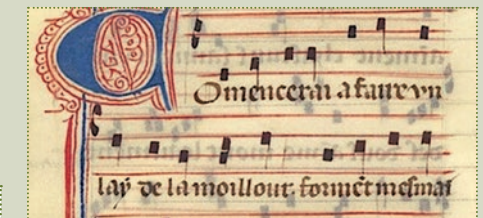 Comencerai a faire vn
lay de la moillour. forment mesmai